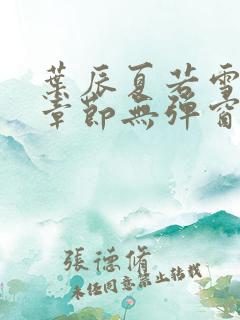 葉辰夏若雪
章節無彈窗
張德脩
未經同意禁止轉載